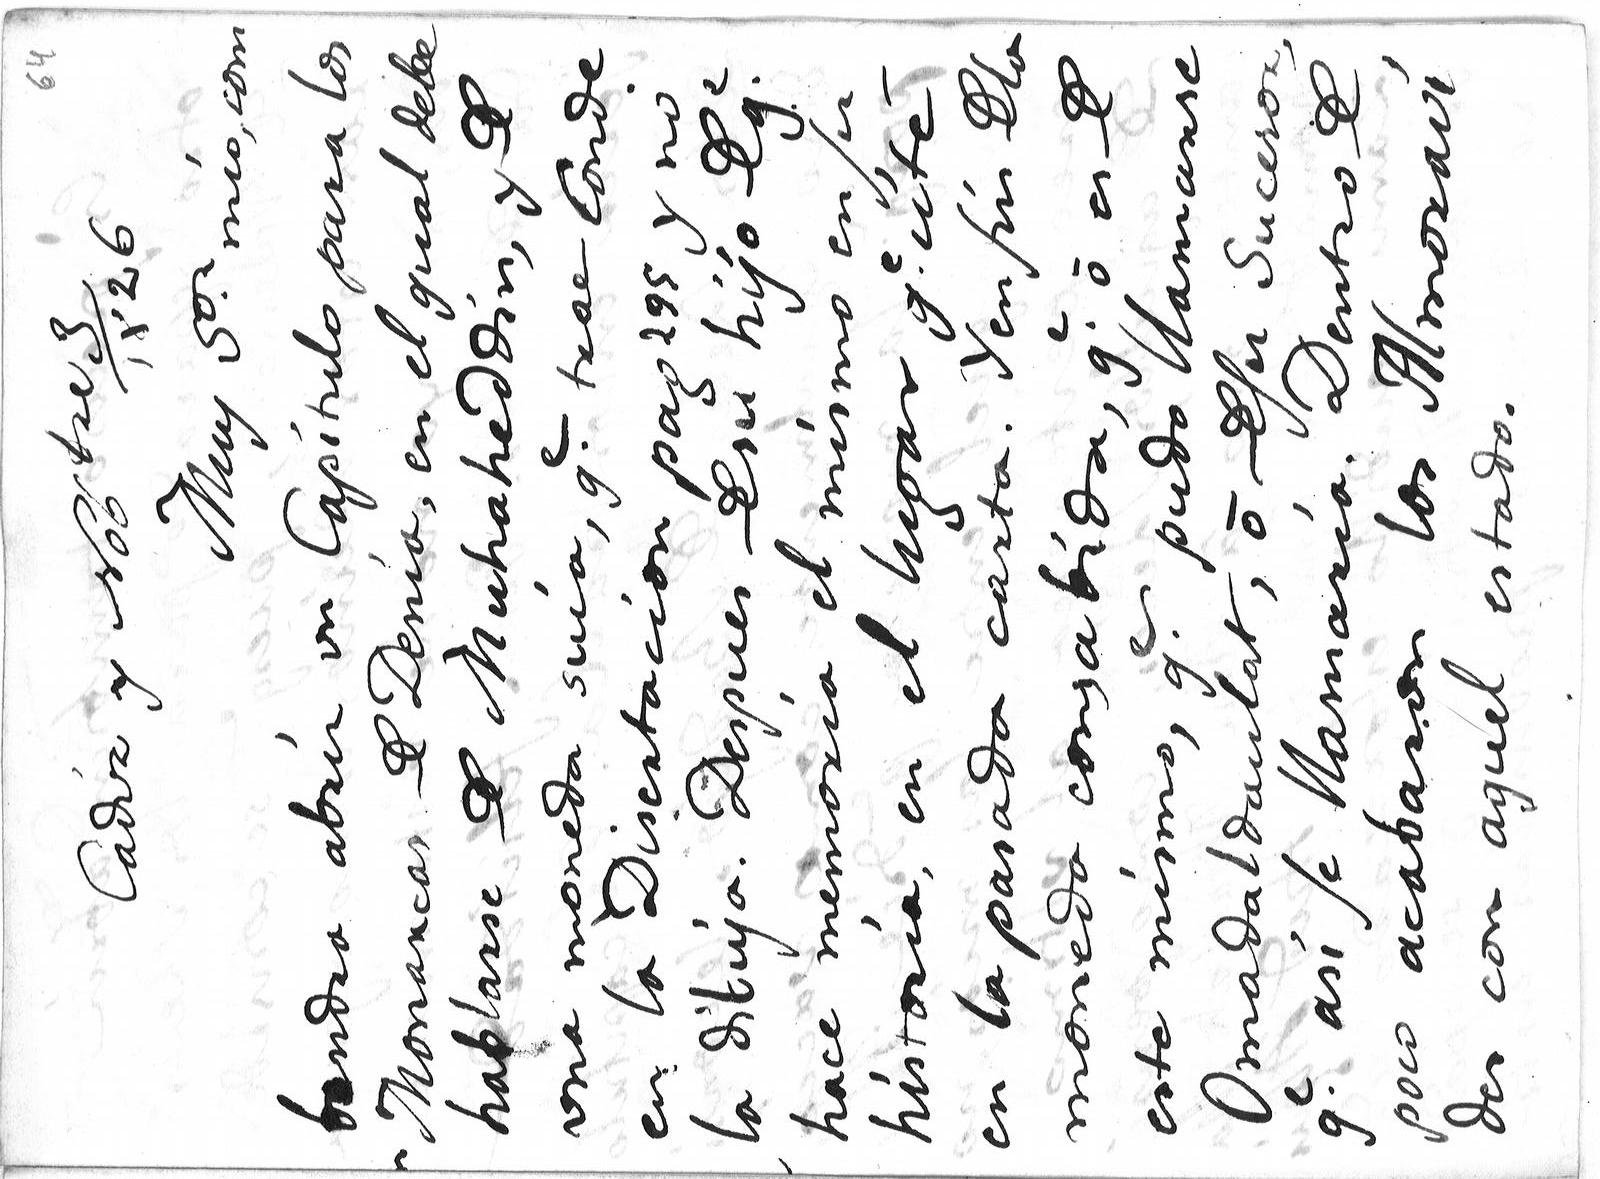 64
Cadiz y Nobbre 3
1826
Muy Sor. mio, com
bendra abrir vn Capitulo para los
Monarcas De Denia, en el qual debe
hablarse De Muhaheddin, y De
vna moneda suia, qe. trae Conde
en la Disertacion pag 295 y no
la dibujo. Despues De su hijo De qe.
hace memoria el mismo en su
historia, en el lugar qe. cité
en la pasada carta. Y en fin De la
moneda consabida, qe. ó es De
este mismo, qe. pudo llamarse
Omadaldaulat, ó De su sucesor,
qe. asi se llamaria. Dentro De
poco acabaron los Almoravi
des con aquel estado.